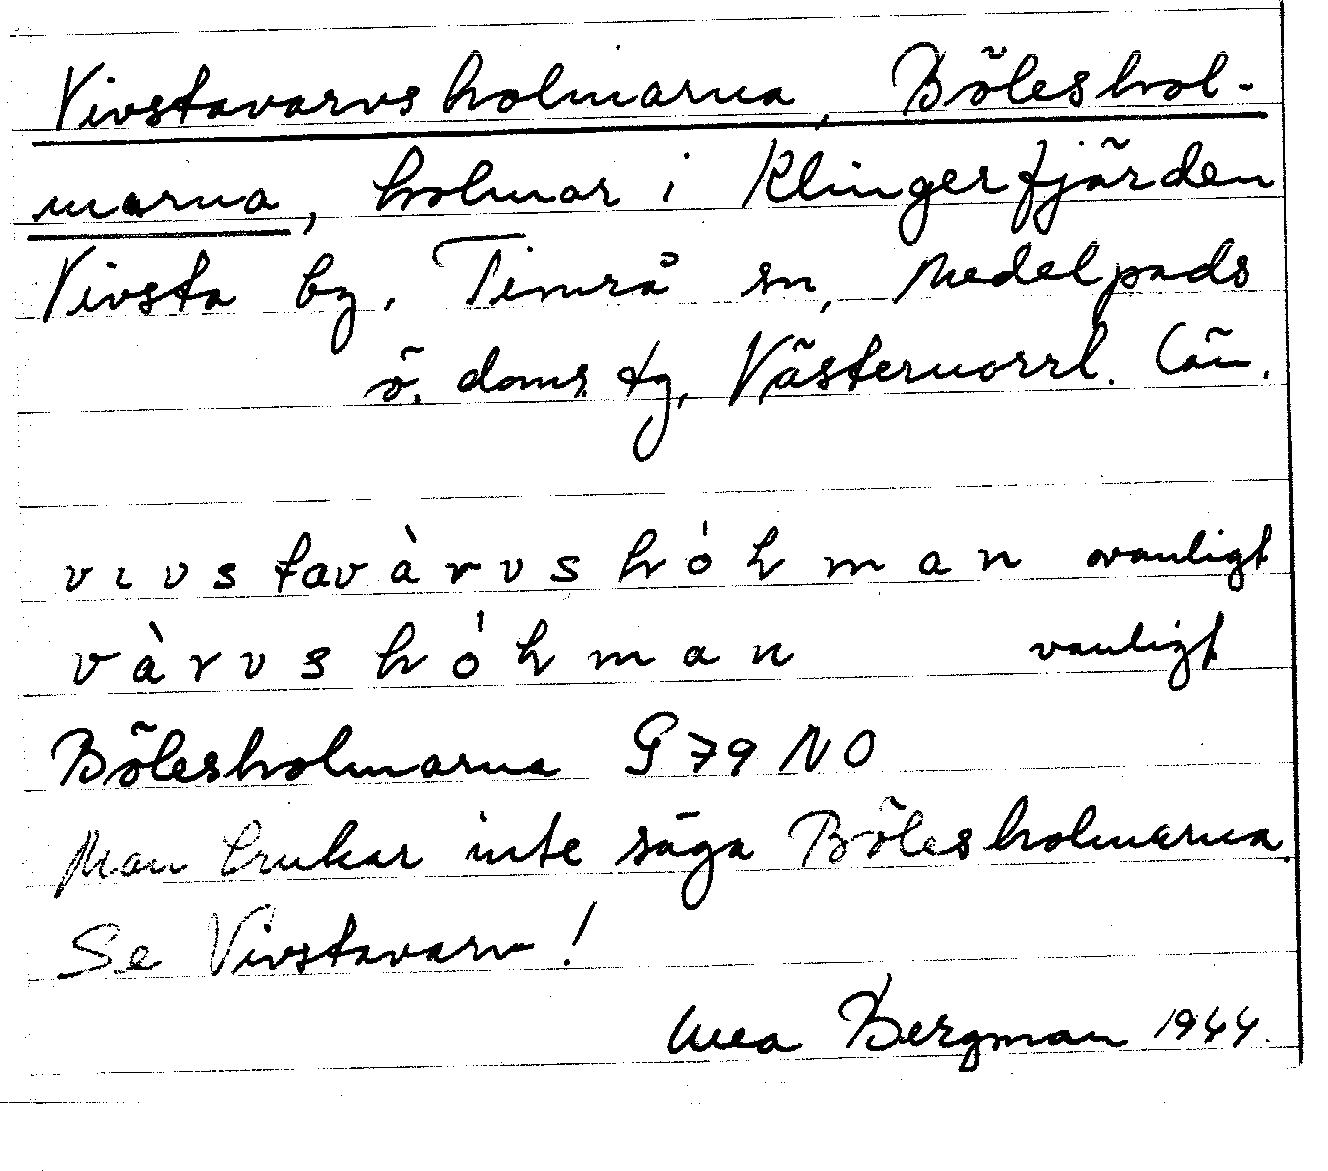 Vivstavarvsholmarna, Böleshol-
marna, holmar i Klingerfjärden
Vivsta by, Timrå sn, Medelpads
ö. doms tg, Västernorrl. län.
vıvstavàrvshóhman ovanligt
vàrvshóhman vanligt
Bölesholmarna G 79 NO
Man brukar inte säga Bölesholmarna.
Se Vivstavarv!
Bergman 1944.